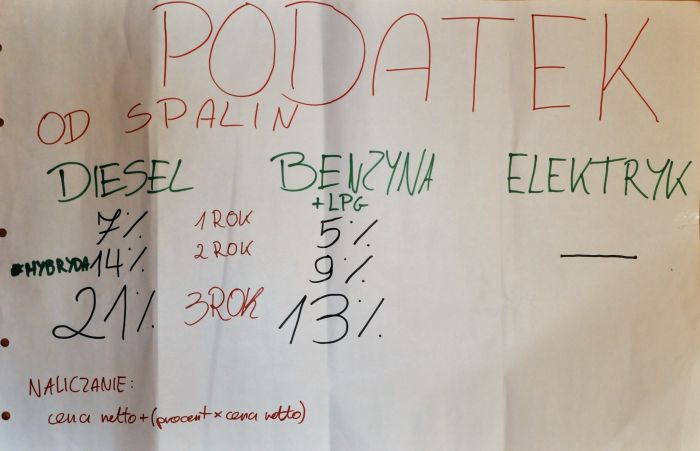 PODATEK
OD SPALIN
DIESEL BENZYNA ELEKTRYK
+LPG
7% 1 ROK 5%
*HYBRYDA 14% 2 ROK 9% —
21% 3 ROK 13%
NALICZANIE:
cena netto + (procent x cena netto)